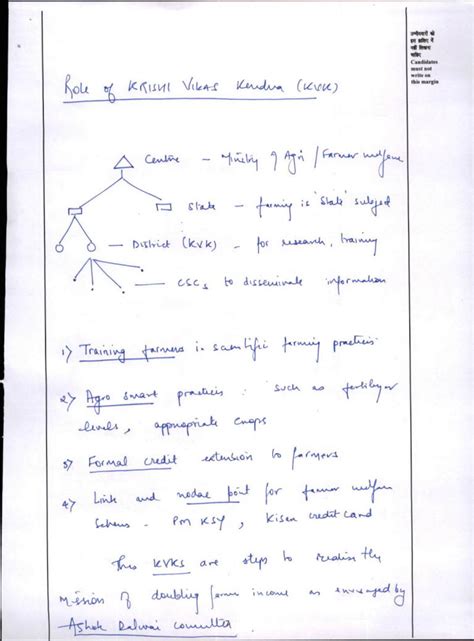 उम्मीदवारों को
इस हाशिए में
नहीं लिखना
चाहिए
Candidates
must not
write on
this margin
Role of KRISHI VIKAS Kendra (KVK)
Centre - Ministry of Agri / Farmer welfare
State - farming is 'State' subject
District (KVK) - for research, training
CSCs to disseminate information
1) Training farmers in scientific farming practices
2) Agro smart practices : such as fertilizer
levels, appropriate crops
3) Formal credit extension to farmers
4) Link and nodal point for farmer welfare
Schemes - PM KSY, Kisan credit card
Thus KVKs are steps to realise the
Mission of doubling farmers income as envisaged by
Ashok Dalwai committee